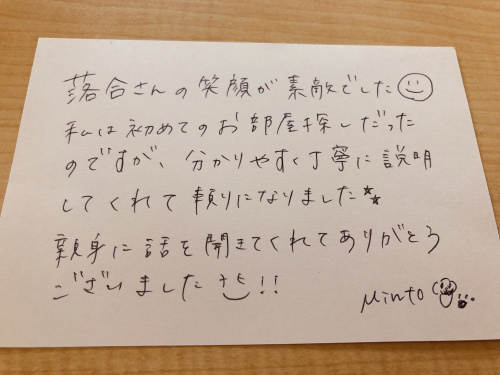 落合さんの笑顔が素敵でした
私は初めてのお部屋探しだった
のですが、分かりやすく丁寧に説明
してくれて頼りになりました
親身に話を聞きてくれてありがとう
ございました!!
Minto